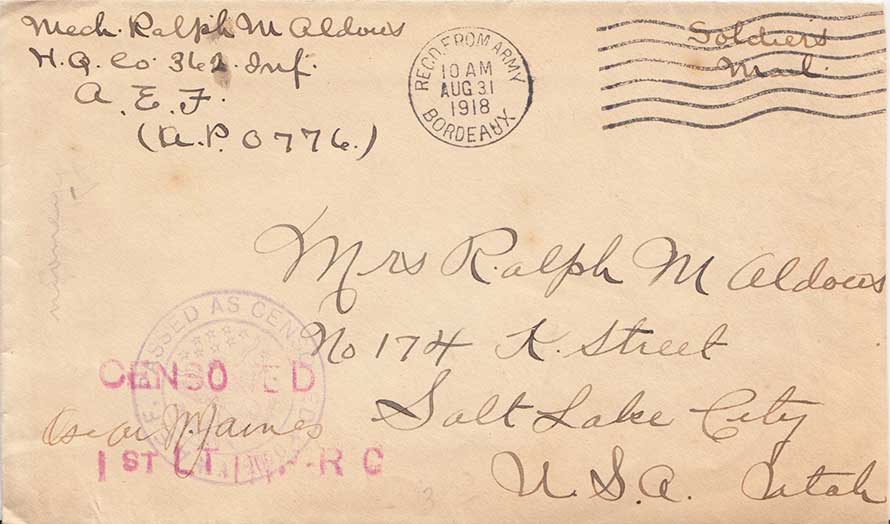 Mech. Ralph M Aldous
H.Q. Co. 362 Inf.
A. E. F.
(A.P. O 776.)
REC'D. FROM ARMY
10 AM
AUG 31
1918
BORDEAUX
Soldiers
Mail
Mrs Ralph M Aldous
No 174 K. Street
Salt Lake City
U. S. A. Utah
PASSED AS CENSORED
CENSO ED
Oscar W. Jaines
1 ST LT INF-R C